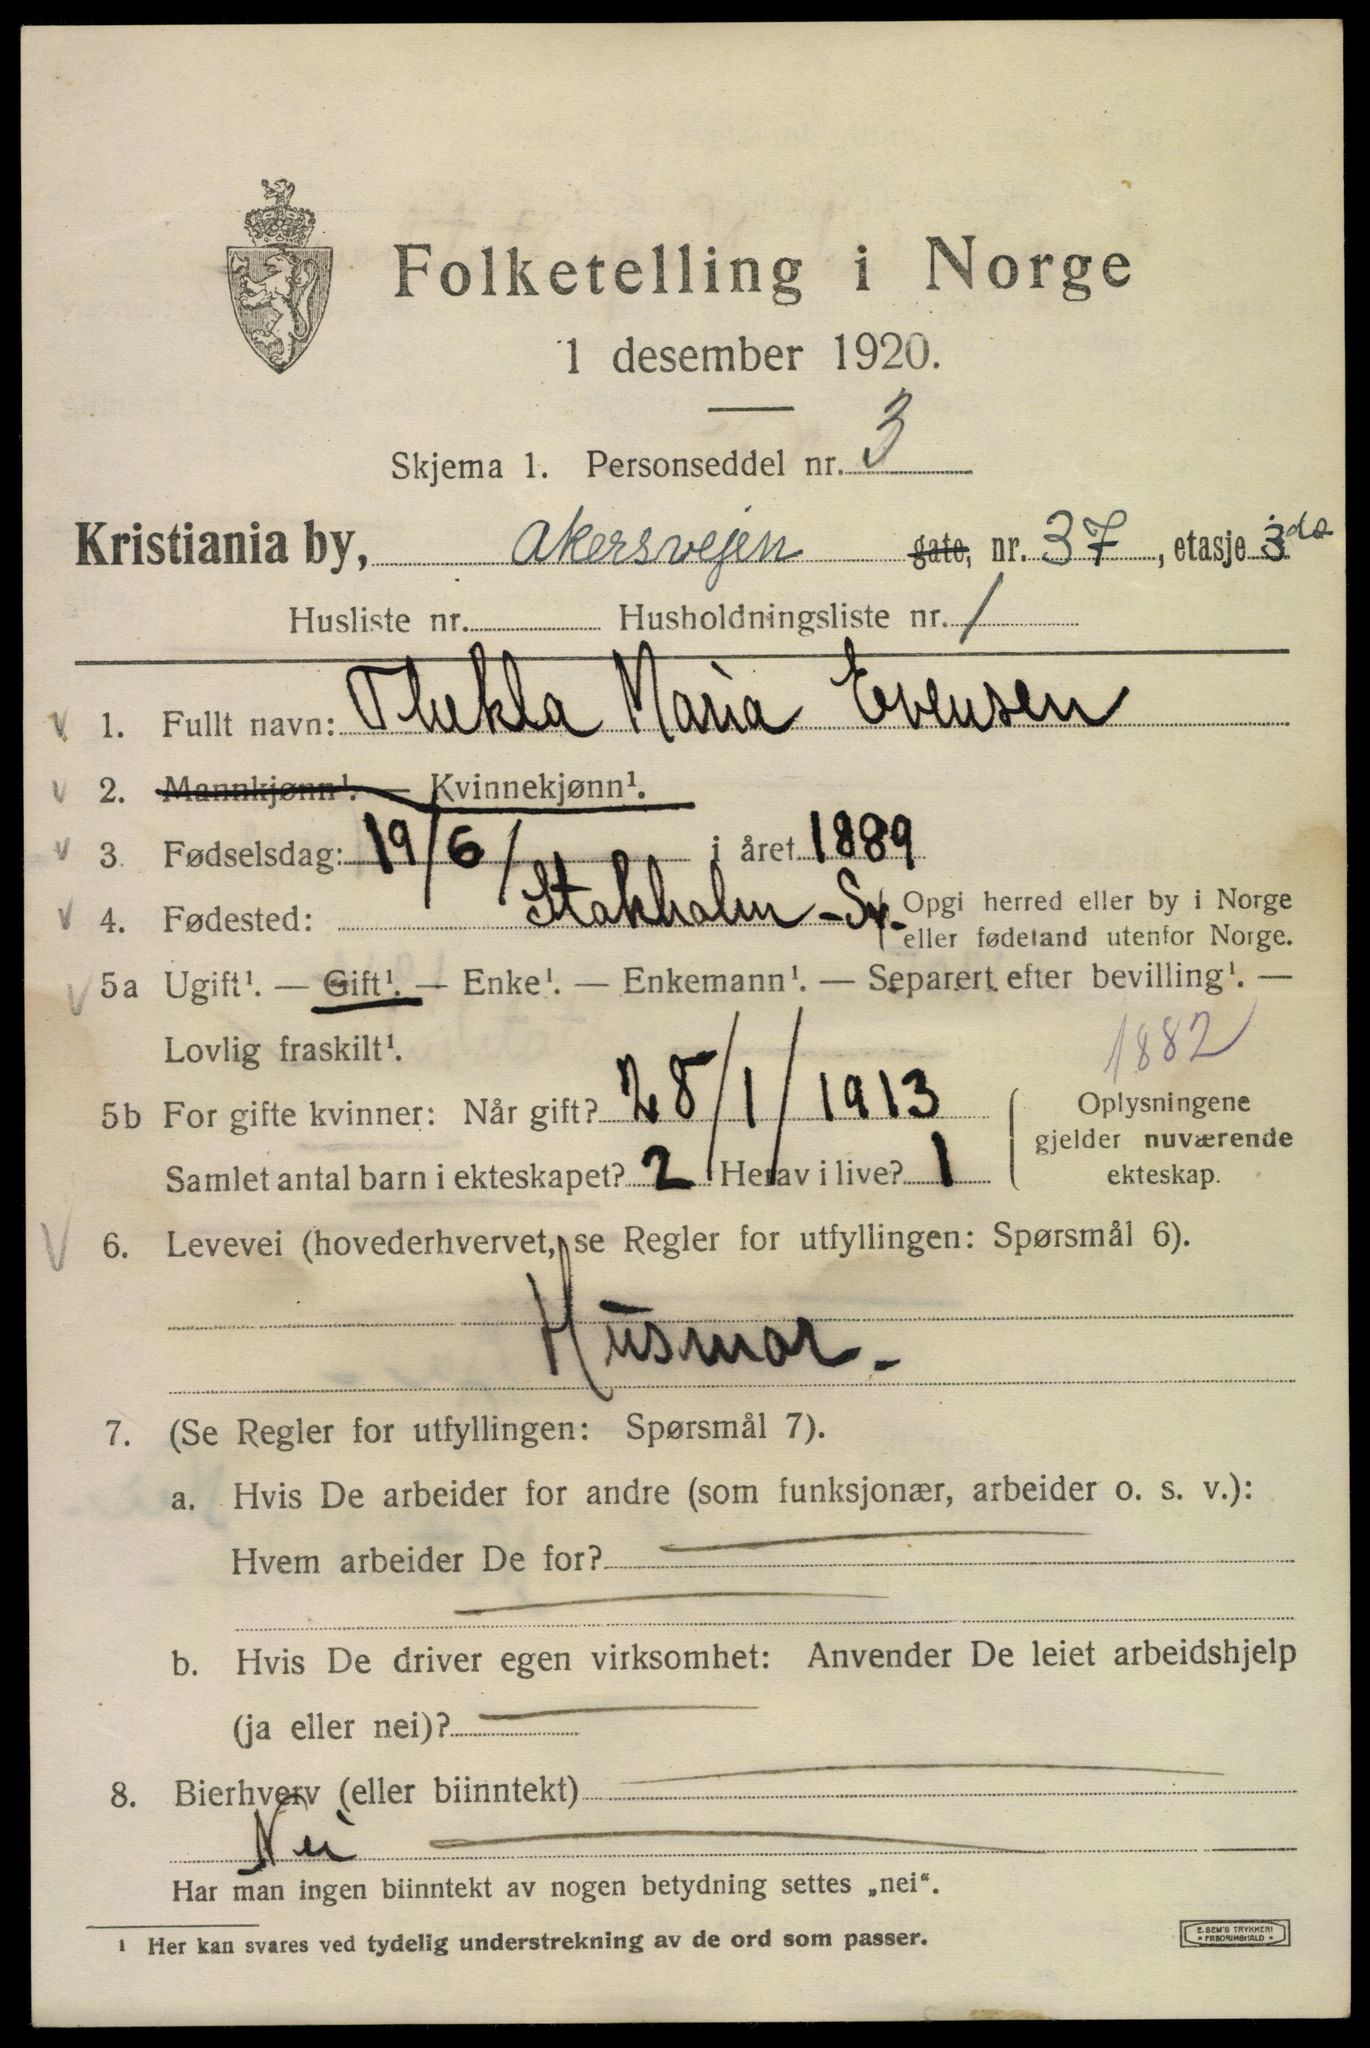 Folketelling i Norge
1 desember 1920.
Skjema 1. Personseddel nr. 3
Kristiania by, Akersvejen gate, nr. 37, etasje 3de
Husliste nr. Husholdningsliste nr. 1
1. Fullt navn: Thekla Maria Evensen
2. Mannkjønn¹. — Kvinnekjønn¹.
3. Fødselsdag: 19/6/ i året 1889
4. Fødested: Stokholm - Sv. Opgi herred eller by i Norge
eller fødeland utenfor Norge.
5a Ugift¹. — Gift¹. — Enke¹. — Enkemann¹. — Separert efter bevilling¹. —
Lovlig fraskilt¹. 1882
5b For gifte kvinner: Når gift? 28/1/1913 Oplysningene
gjelder nuværende
Samlet antal barn i ekteskapet? 2 Herav i live? 1 ekteskap.
6. Levevei (hovederhvervet, se Regler for utfyllingen: Spørsmål 6).
Husmor.-
7. (Se Regler for utfyllingen: Spørsmål 7).
a. Hvis De arbeider for andre (som funksjonær, arbeider o. s. v.):
Hvem arbeider De for?
b. Hvis De driver egen virksomhet: Anvender De leiet arbeidshjelp
(ja eller nei)?
8. Bierhverv (eller biinntekt)
Nei
Har man ingen biinntekt av nogen betydning settes „nei“.
¹ Her kan svares ved tydelig understrekning av de ord som passer.
E. SEM'S TRYKKERI
* FREDRIKSHALD *